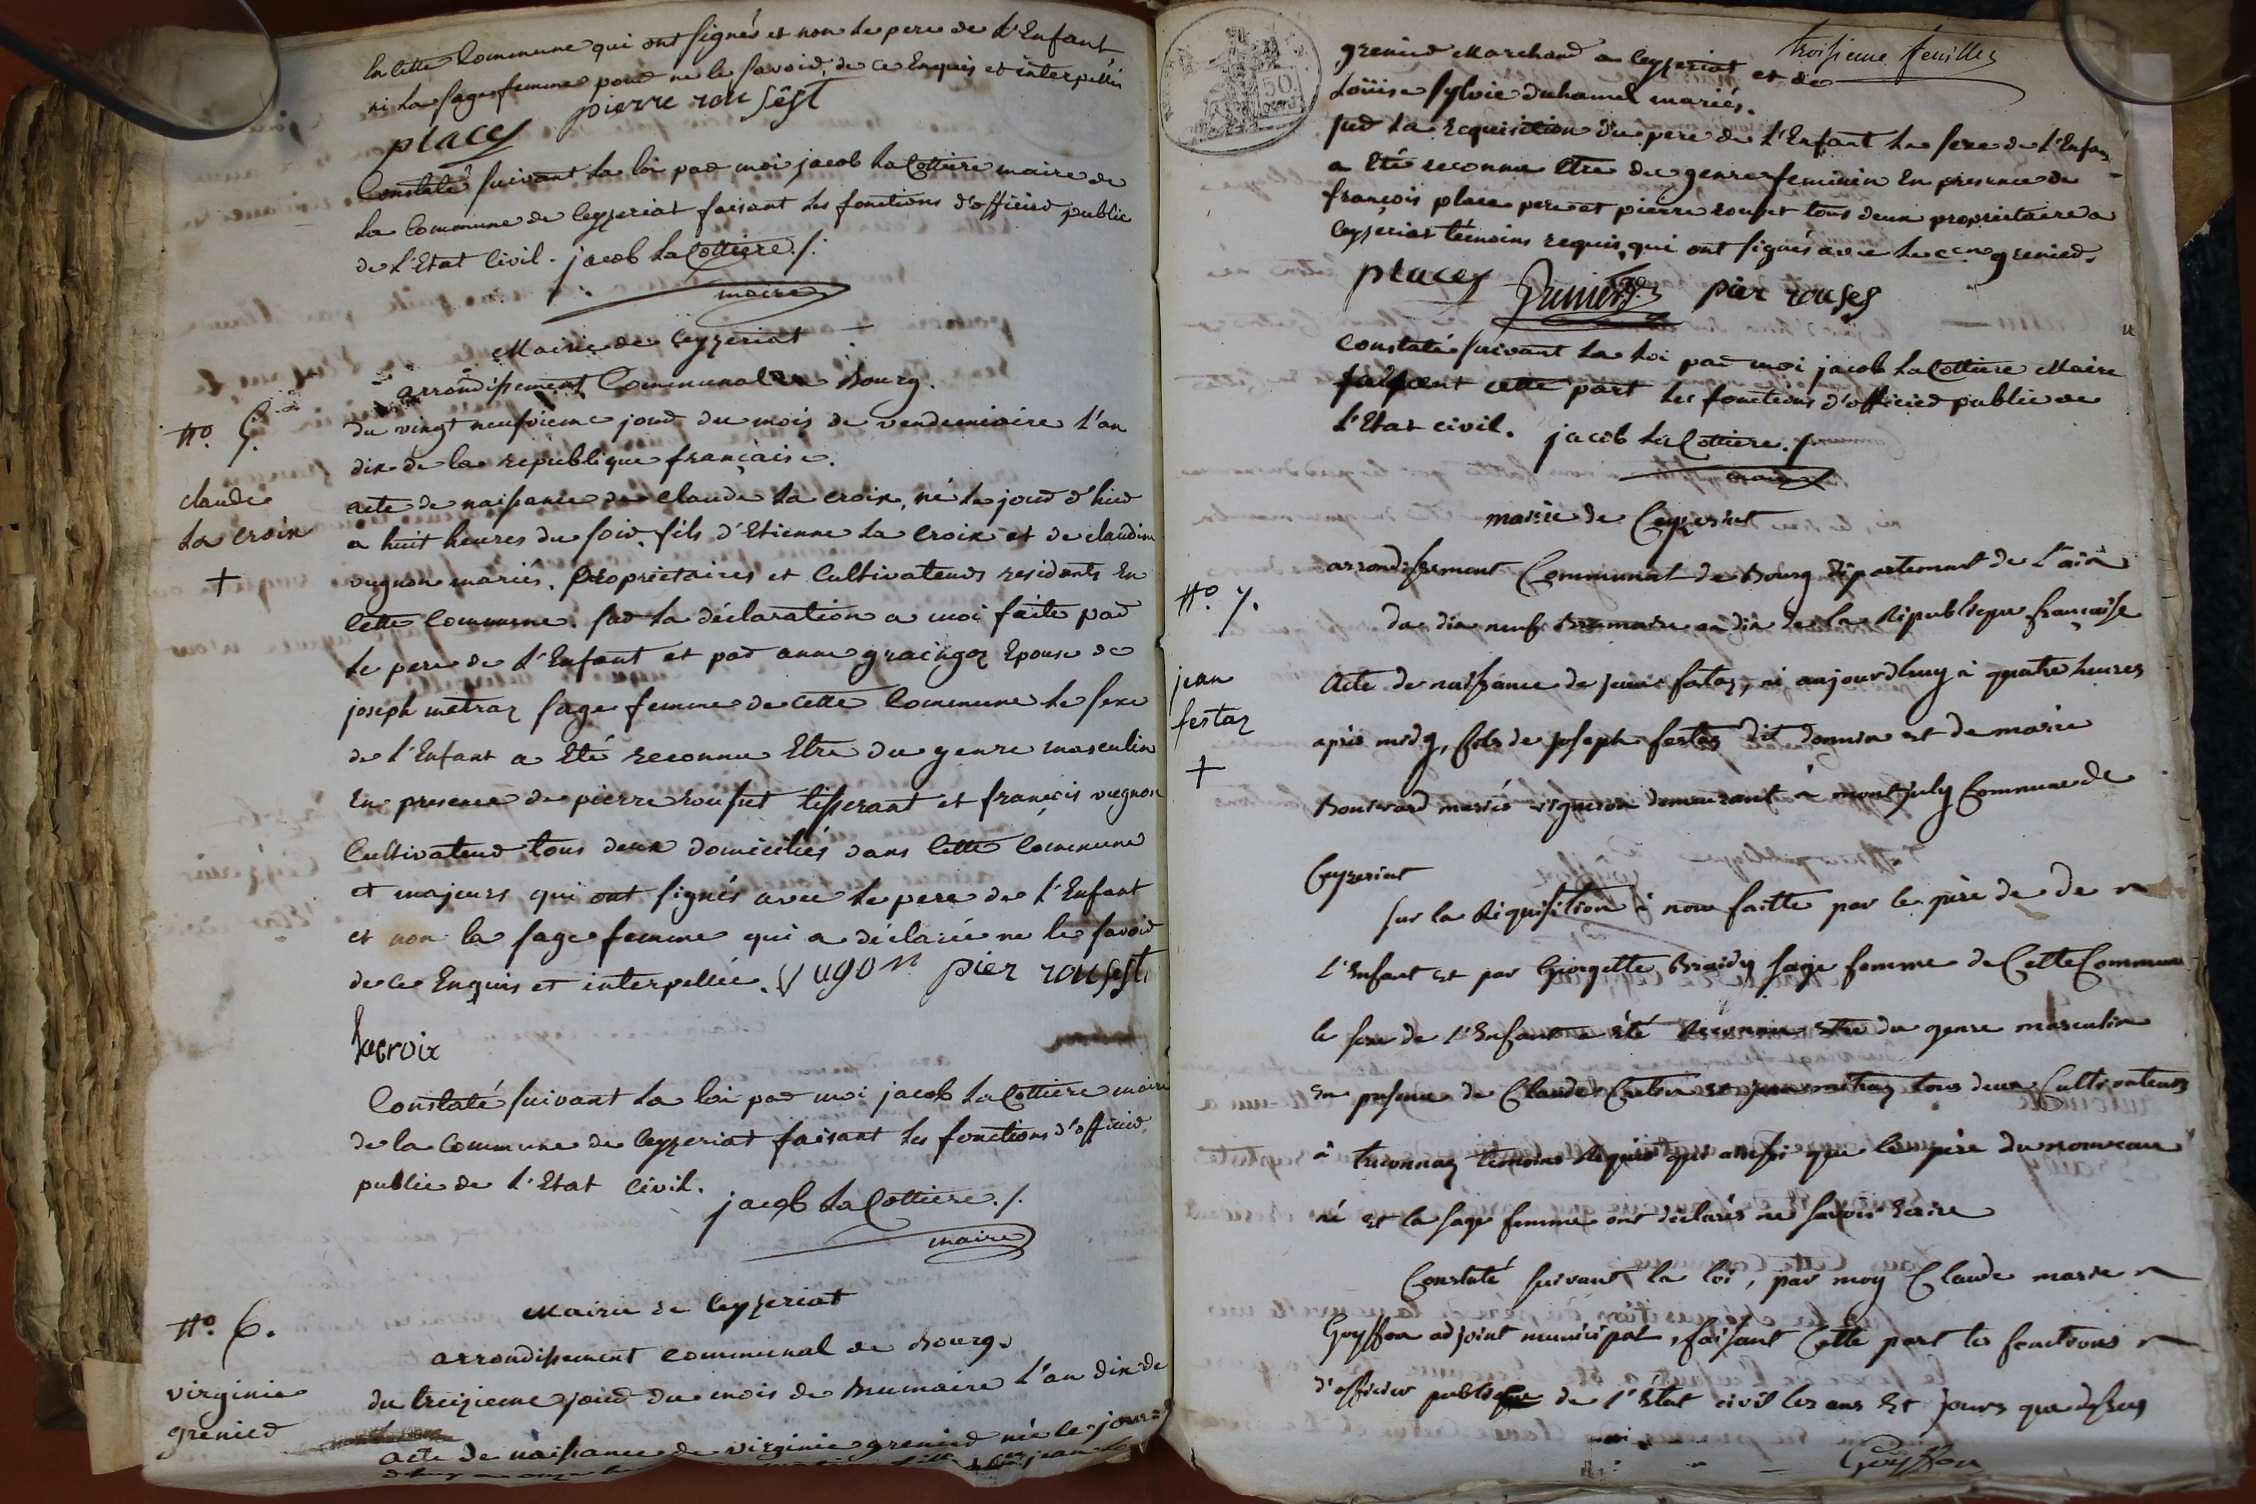 En cette Commune qui ont signés et non le pere de l'Enfant
ni la sage femme pour ne le savoir, de ce Enquis et interpellés
places pierre rousest
Constaté suivant la loi par moi jacob la Cottiere maire de
la Commune de Ceyzeriat faisant les fonctions d'officier public
de l'Etat Civil. jacob la Cottiere ./.
maire
Mairie de Ceyzeriat
arrondissement Communal de Bourg.
N.o 5.
du vingt neufvieme jour du mois de vendemiaire l'an
dix de la republique française.
claude
la croix
+
acte de naissance de claude la croix, né le jour d'hier
a huit heures du soir, fils d'Etienne la croix et de claudine
vugnon mariés, propriétaires et Cultivateurs residents En
cette Commune. sur la déclaration a moi faite par
le pere de l'Enfant et par anne graingoz Epouse de
joseph metraz sage femme de cette Commune le sexe
de l'Enfant a Eté reconnu Etre du genre masculin
En presence de pierre rouset tisserant et françois vugnon
Cultivateur tous deux domiciliés dans cette Commune
et majeurs qui ont signés avec le pere de l'Enfant
et non la sage femme qui a déclarée ne le savoir
de ce Enquis et interpellée. Vugon pier rousest
lacroix
Constaté suivant la loi par moi jacob la Cottiere maire
de la Commune de Ceyzeriat faisant les fonctions d'officier
public de l'Etat Civil.
jacob la Cottiere ./.
maire
Mairie de Ceyzeriat
N.o 6.
arrondissement communal de Bourg.
virginie
grenier
du treizieme jour du mois de Brumaire l'an dix de
acte de naissance de virginie grenier née le jour
troisieme feuille
grenier Marchand a Ceyzeriat et de
Loüise Sylvie duhamel mariés.
sur la requisition du pere de l'Enfant le sexe de l'Enfan
a Eté reconnu Etre du genre feminin En presence de
françois place pere et pierre rouset tous deux propriétaire a
Ceyzeriat témoins requis, qui ont signés avec le c.en grenier.
places Grenier pier rouses
Constaté suivant la loi par moi jacob la Cottiere Maire
faisant cette part les fonctions d'officier public de
l'Etat civil. jacob la Cottiere ./.
maire
mairie de Ceyzeriat
arrondissement Communal de Bourg département de l'ain
N.o 7.
du dix neuf Brumaire an dix de la République française
jean
festaz
+
Acte de naissance de jean festaz, né aujourdhuy à quatre heures
après midy, fils de joseph festaz dit donnin et de marie
Bouvard mariés vigneron demeurant à montjuly Commune de
Ceyzeriat
sur la Réquisition à nous faitte par le père de de
l'Enfant et par Georgette Braidy sage femme de Cette Commune
le sexe de l'Enfant a été Reconnu etre du genre masculin
en présence de Claude Cretin et jean metraz tous deux Cultivateurs
à treconnaz témoins Requis qui ainsi que le père du nouveau
né et la sage femme ont déclarés ne savoir Ecrire
Constaté suivant la loi, par moy Claude marie
Goyffon adjoint municipal, faisant Cette part les fonctions
d'officier publique de l'Etat civil les ans et jours que dessus
Goyffon